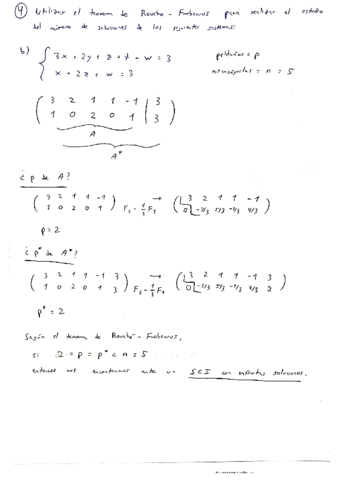 4) Utilizar el teorema de Rouché-Frobenius para realizar el estudio
del número de soluciones de los siguientes sistemas:
b) { 3x + 2y + z + t - w = 3 peldaños = p
x + 2z + w = 3 nº incógnitas = n = 5
( 3 2 1 1 -1 | 3 )
( 1 0 2 0 1 | 3 )
A
A*
¿ p de A?
( 3 2 1 1 -1 ) → ( 3 2 1 1 -1 )
( 1 0 2 0 1 ) F₂ - 1/3 F₁ ( 0 -2/3 5/3 -1/3 4/3 )
p = 2
¿ p* de A*?
( 3 2 1 1 -1 3 ) → ( 3 2 1 1 -1 3 )
( 1 0 2 0 1 3 ) F₂ - 1/3 F₁ ( 0 -2/3 5/3 -1/3 4/3 2 )
p* = 2
Según el teorema de Rouché-Frobenius,
si 2 = p = p* < n = 5
entonces nos encontramos ante un SCI con infinitas soluciones.